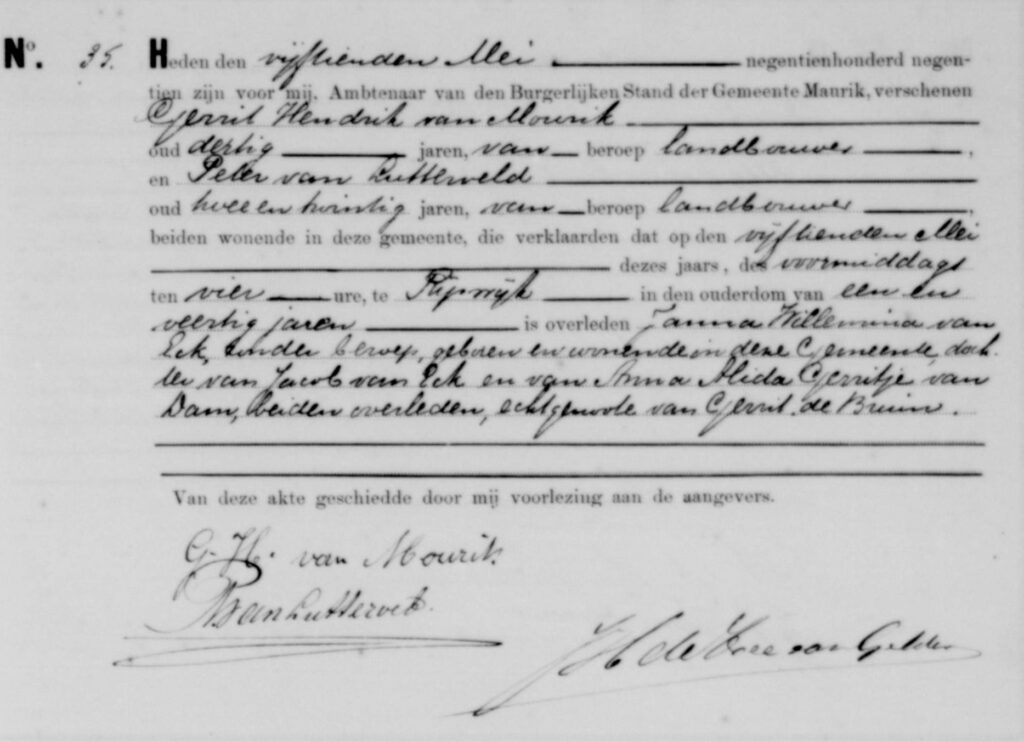 No. 35. Heden den vijftienden Mei negentienhonderd negen-
tien zijn voor mij, Ambtenaar van den Burgerlijken Stand der Gemeente Maurik, verschenen
Gerrit Hendrik van Mourik
oud dertig jaren, van beroep landbouwer,
en Peter van Lutterveld
oud twee en twintig jaren, van beroep landbouwer,
beiden wonende in deze gemeente, die verklaarden dat op den vijftienden Mei
dezes jaars, des voormiddags
ten vier ure, te Rijswijk in den ouderdom van een en
veertig jaren is overleden Janna Willemina van
Eck, zonder beroep, geboren en wonende in deze Gemeente, doch
ter van Jacob van Eck en van Anna Alida Gerritje van
Dam, beiden overleden, echtgenoote van Gerrit de Bruin.
Van deze akte geschiedde door mij voorlezing aan de aangevers.
G. H. van Mourik
P van Luttervelt.
JH de van Gelder